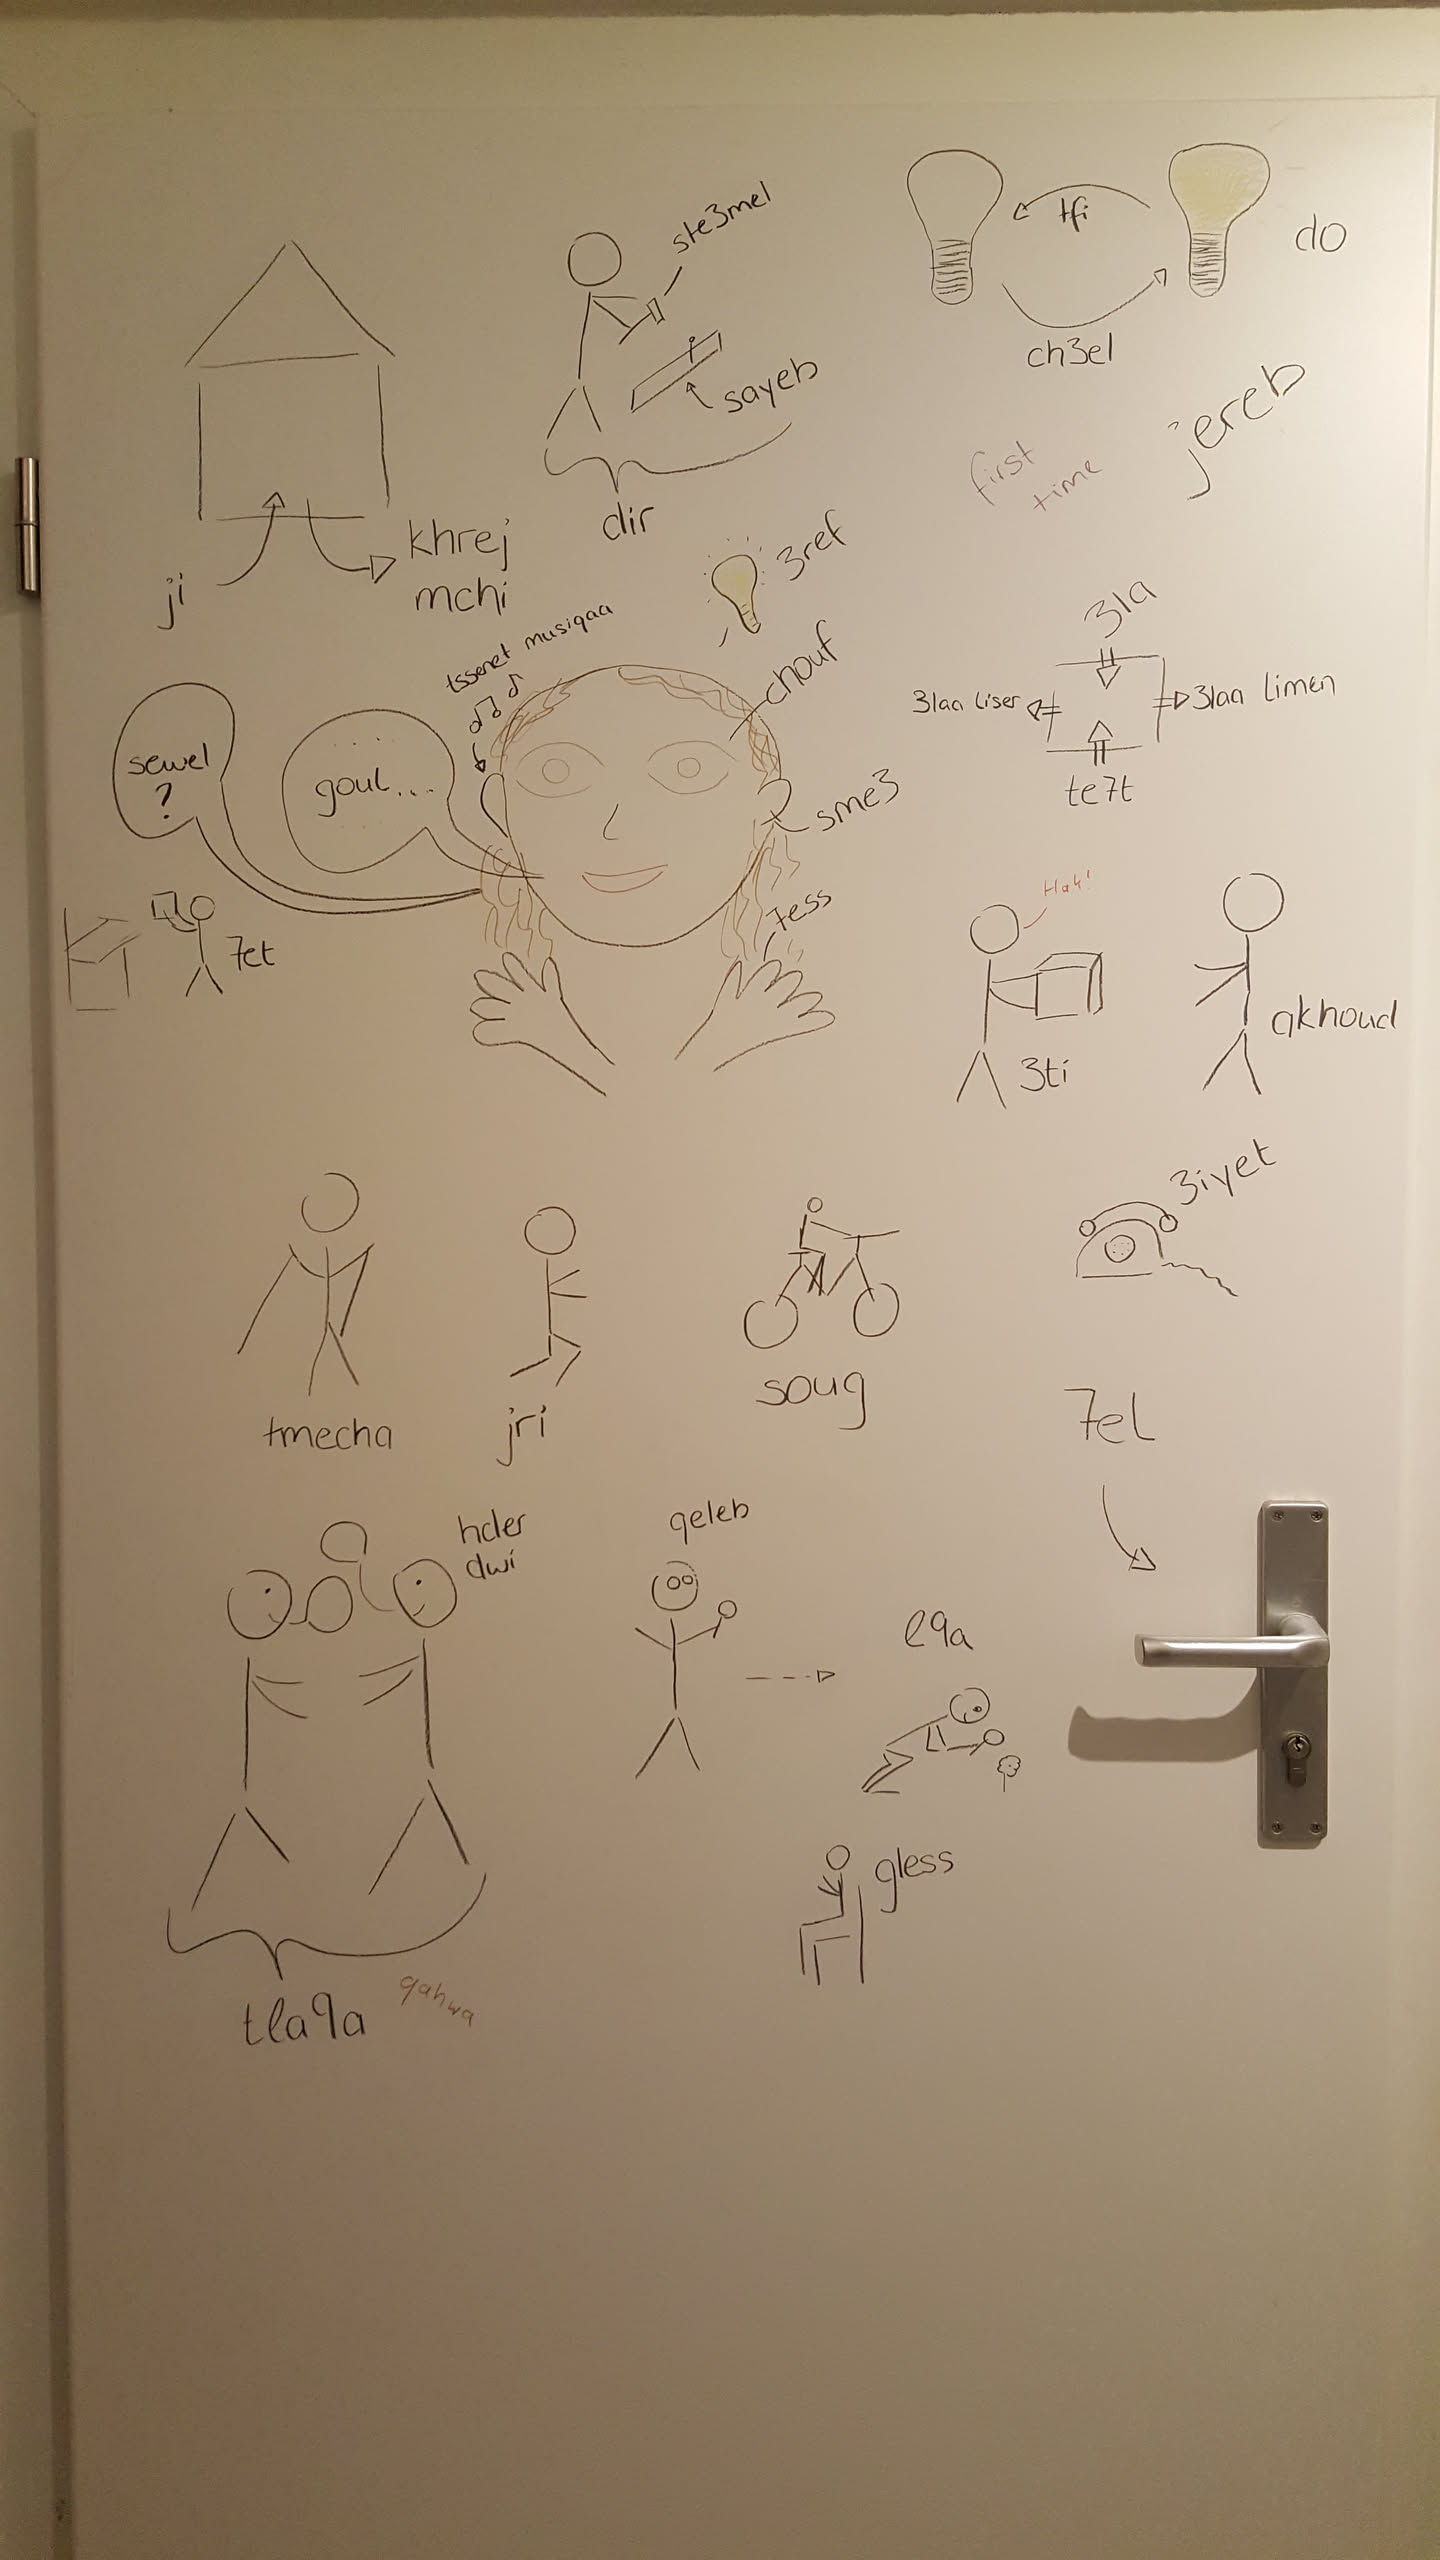 ste3mel
tfi
do
ch3el
sayeb
jereb
first
time
dir
khrej
mchi
ji
3ref
tssenet musiqaa
chouf
3la
3laa liser
3laa limen
te7t
sewel
?
goul....
sme3
7ess
7et
Hak!
3ti
akhoud
3iyet
tmecha
jri
soug
7el
hder
dwi
qeleb
l9a
gless
tla9a
qahwa